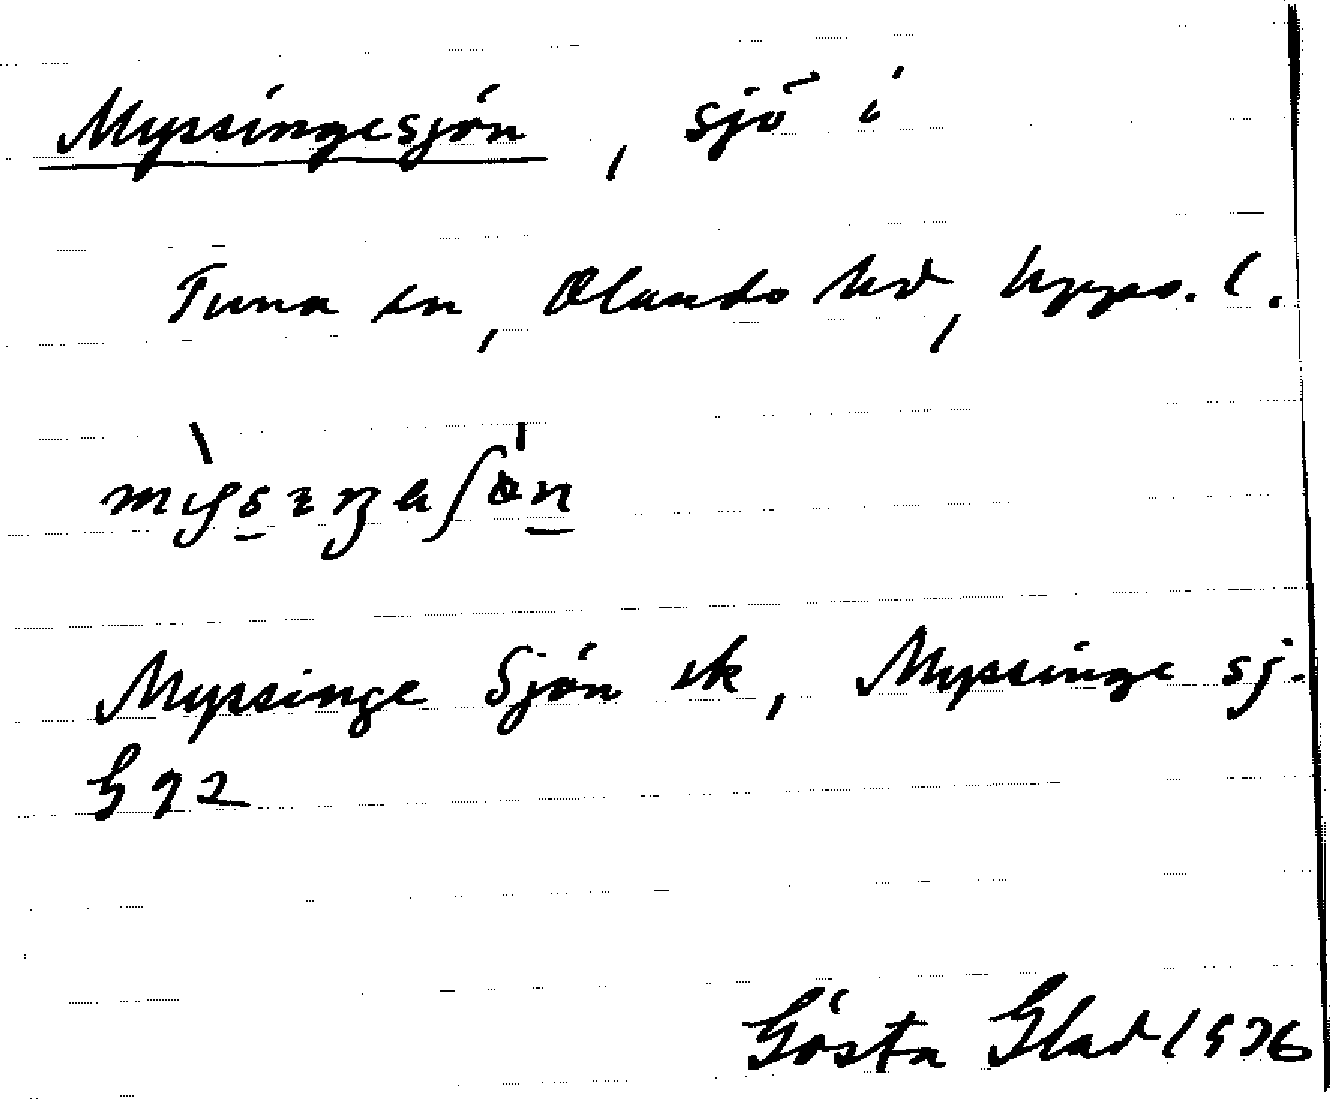 Myssingesjön, sjö i
Tuna sn, Olands hd, Upps. l.
Myssinge Sjön sk, Myssinge sj.
G 92
Gösta Glad 1926